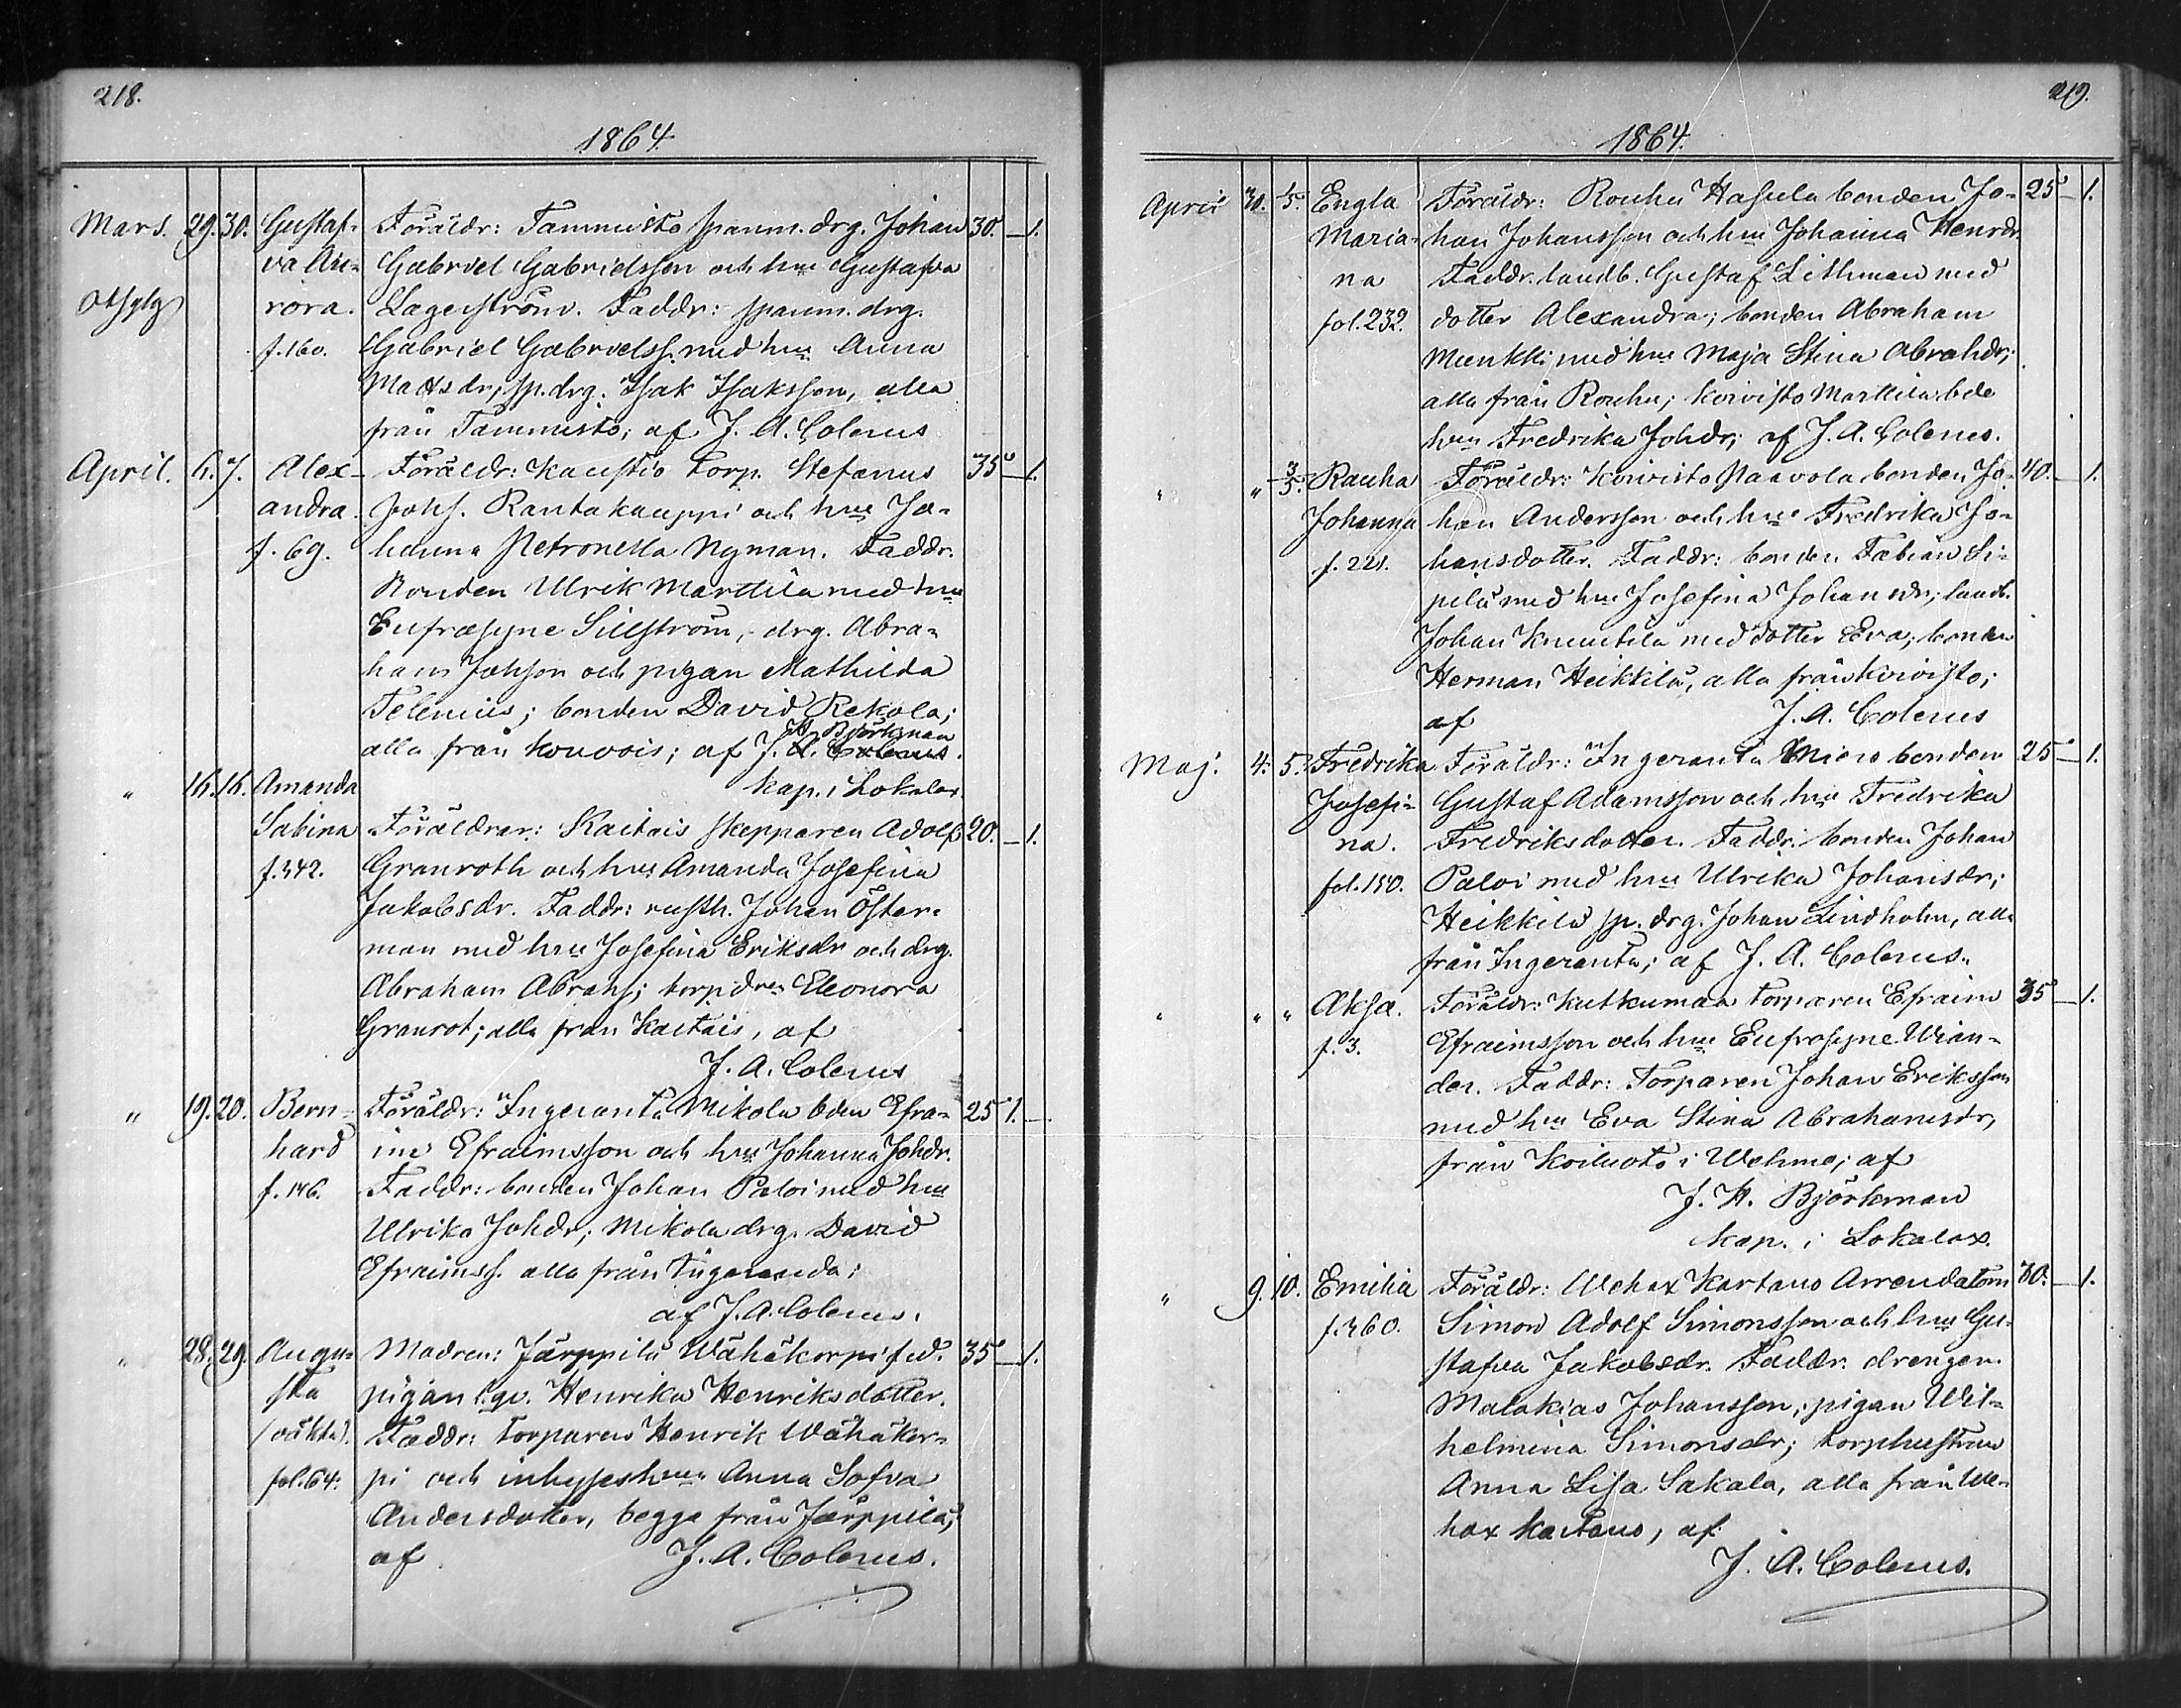 218.
1864.
Mars. 29. 30. Gustaf- Föräldr: Tammisto spanm. drg. Johan 30. — 1.
va Au- Gabriel Gabrielsson och hu Gustafva
rora. Lagerström. Faddr: spanm. drg.
f. 160. Gabriel Gabrielss. med hu Anna
Matsdr; sp. drg. Isak Isaksson, alla
från Tammisto; af J. A. Colerus
April. 6. 7. Alex- Föräldr: Kaustio Torp. Stefanus 35 — 1.
andra. Johs. Rantakauppi och hu Jo-
f. 69. hanna Petronella Nyman. Faddr.
Bonden Ulrik Marttila med hu
Eufrosyne Sillström, drg. Abra-
ham Jakss​on och pigan Mathilda
Telenius; bonden David Rekola;
H. Björkman
alla från Kouvois; af J. A. Colerus.
kap. i Lokalax.
" 16. 16. Amanda
Sabina Föräldrar: Kaitais skepparen Adolf 20. — 1.
f. 342. Granroth och hu Amanda Josefina
Jakobsdr. Faddr: rusth. Johan Öster-
man med hu Josefina Eriksdr och drg.
Abraham Abrahs; torpdrn Eleonora
Granrot; alla från Kaitais, af
J. A. Colerus
" 19. 20. Bern- Föräldr: Ingeranta Mikola bden Efra- 25 1. —
hard im Efraimsson och hu Johanna Johdr.
f. 146. Faddr: bonden Johan Paloi med hu
Ulrika Johdr; Mikola drg. David
Efraimss. alla från Ingeranda;
af J. A. Colerus.
" 28. 29. Augu- Modren: Järppilä Wähäkorpi fred. 35 — 1.
sta pigan Henrika Henriksdotter.
(oäkta). Faddr: torparen Henrik Wähäkor-
fol. 64. pi och inhyseshun Anna Sofva
Andersdotter, begge från Järppilä;
af J. A. Colerus.
219.
1864.
April 30. 1/5. Engla Föräldr: Rouhu Hasula bonden Jo- 25 — 1.
Maria- han Johansson och hu Johanna Henrdr.
na Faddr. landb. Gustaf Lithman med
fol. 232. dotter Alexandra; bonden Abraham
Munkki med hu Maja Stina Abrahdr;
alla från Rouhu; Koivisto Markula bde
hun Fredrika Johdr; af J. A. Colerus.
" " 3/5. Rauha Föräldr: Koivisto Paavola bonden Jo- 40. — 1.
Johanna han Andersson och hu Fredrika Jo-
f. 221. hansdotter. Faddr: bonden Fabian Si-
pilä med hu Josefina Johansdr; landb.
Johan Knuutila med dotter Eva; bonden
Herman Heikkilä, alla från Koivisto;
af J. A. Colerus
Maj. 4. 5. Fredrika Föräldr: Ingeranta Miero bonden 25 — 1.
Josefi- Gustaf Adamsson och hu Fredrika
na. Fredriksdotter. Faddr: bonden Johan
fol. 150. Paloi med hu Ulrika Johansdr;
Heikkilä sp. drg. Johan Lindholm, alla
från Ingeranta; af J. A. Colerus.
" " " Aksa. Föräldr: Kutkumaa torparen Efraim 35 — 1.
f. 3. Efraimsson och hu Eufrosyne Wian-
der. Faddr: Torparen Johan Eriksson
med hu Eva Stina Abrahamsdr,
från Koiluoto i Wehmo; af
J. H. Björkman
kap. i Lokalax.
" 9. 10. Emilia Föräldr: Wehax Kartano Arrendatorn 30. — 1.
f. 360. Simon Adolf Simonsson och hu Gu-
stafva Jakobsdr. Faddr. drengen
Malakias Johansson; pigan Wil-
helmina Simonsdr; torphustrun
Anna Lisa Sakala, alla från We-
hax Kartano, af
J. A. Colerus.